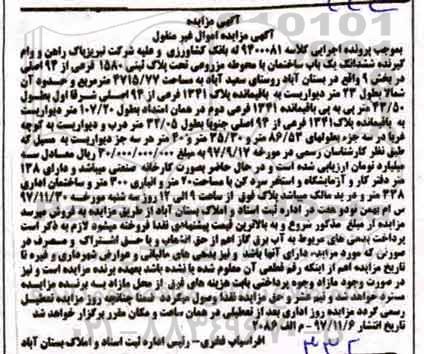 آگهی مزایده
آگهی مزایده اموال غیر منقول
بموجب پرونده اجرایی کلاسه ۹۴۰۰۰۸۱ له بانک کشاورزی و علیه شرکت تبریزپاک راهن و وام
گیرنده ششدانگ یک باب ساختمان با محوطه مزروعی تحت پلاک ثبتی ۱۵۸۰ فرعی از ۹۴ اصلی
در بخش ۹ واقع در بستان آباد روستای سعید آباد به مساحت ۴۷۱۵/۷۷ مترمربع و حدود آن
شمالا بطول ۲۳ متر دیواریست به باقیمانده پلاک ۱۳۴۱ فرعی از ۹۴ اصلی شرقا اول بطول
۴۳/۵۰ متر پی به پی باقیمانده ۱۳۴۱ فرعی دوم در همان امتداد بطول ۱۰۷/۲۰ متر دیواریست
به باقیمانده پلاک ۱۳۴۱ فرعی از ۹۴ اصلی جنوبا بطول ۳۲/۰۵ متر درب و دیواریست به کوچه
غربا در سه جزء بطولهای ۸۶/۵۳ متر و ۲۵/۳۰ متر و ۴۰ متر در سه جز دیواریست به مسیل که
طبق نظر کارشناس رسمی در مورخه ۹۷/۹/۱۷ به مبلغ ۲۰/۰۰۰/۰۰۰/۰۰۰ ریال معادل
میلیارد تومان ارزیابی شده است و در حال حاضر بصورت کارخانه صنعتی میباشد و دارای ۱۳۸
متر دفتر کار و آزمایشگاه و استخر سرد کن با مساحت ۷۰ متر و انباری ۳۰۰ متر و ساختمان اداری
۳۳۸ متر و در ید مالک میباشد پلاک فوق از ساعت ۹ الی ۱۲ روز سه شنبه مورخه ۹۷/۱۱/۳۰
سی ام بهمن نود و هفت در اداره ثبت اسناد و املاک بستان آباد از طریق مزایده به فروش میرسد
مزایده از مبلغ مذکور شروع و به بالاترین قیمت پیشنهادی نقدا فروخته میشود لازم به ذکر است
پرداخت بدهی های مربوط به آب برق گاز اعم از حق انشعاب و یا حق اشتراک و مصرف در
صورتی که مورد مزایده دارای آنها باشد و نیز بدهی های مالیاتی و عوارض شهرداری و غیره تا
تاریخ مزایده اعم از اینکه رقم قطعی آن معلوم شده یا نشده باشد بعهده برنده مزایده است و نیز
در صورت وجود مازاد وجوه پرداختی بابت هزینه های فوق از محل مازاد به برنده مزایده
مسترد خواهد شد و نیم عشر و حق مزایده نقدا وصول میگردد ضمنا چنانچه روز مزایده تعطیل
رسمی گردد مزایده روز اداری بعد از تعطیلی در همان ساعت و مکان مقرر برگزار خواهد شد
تاریخ انتشار ۹۷/۱۱/۶ - م الف ۲۰۸۶
افراسیاب فطری – رئیس اداره ثبت اسناد و املاک بستان آباد